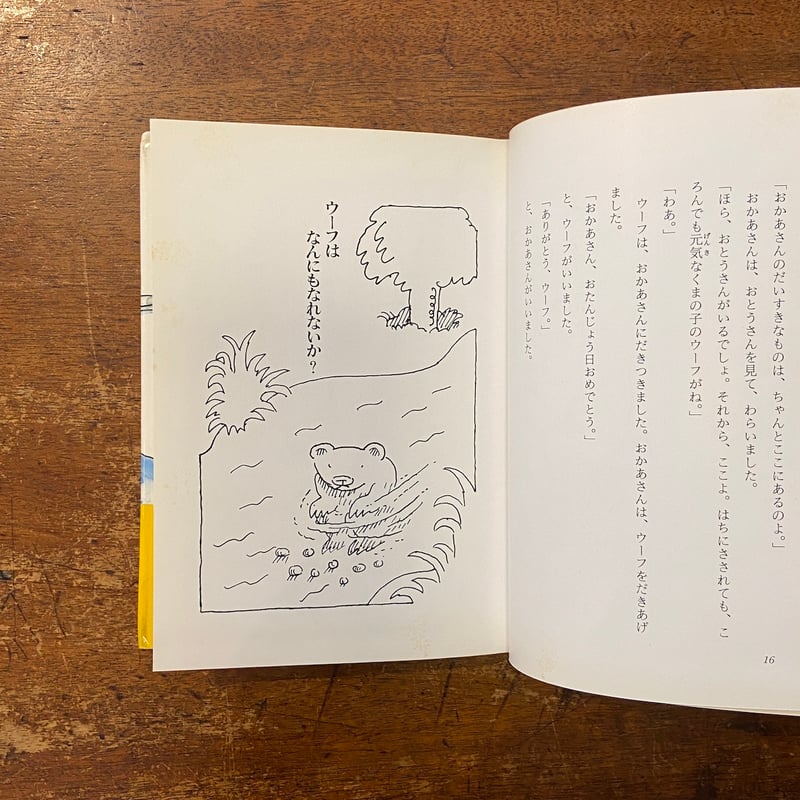 「おかあさんのだいすきなものは、ちゃんとここにあるのよ。」
おかあさんは、おとうさんを見て、わらいました。
「ほら、おとうさんがいるでしょ。それから、ここよ。はちにさされても、こ
ろんでも元気なくまの子のウーフがね。」
げんき
「わあ。」
ウーフは、おかあさんにだきつきました。おかあさんは、ウーフをだきあげ
ました。
「おかあさん、おたんじょう日おめでとう。」
と、ウーフがいいました。
「ありがとう、ウーフ。」
と、おかあさんがいいました。
16
ウーフは
なんにもなれないか?